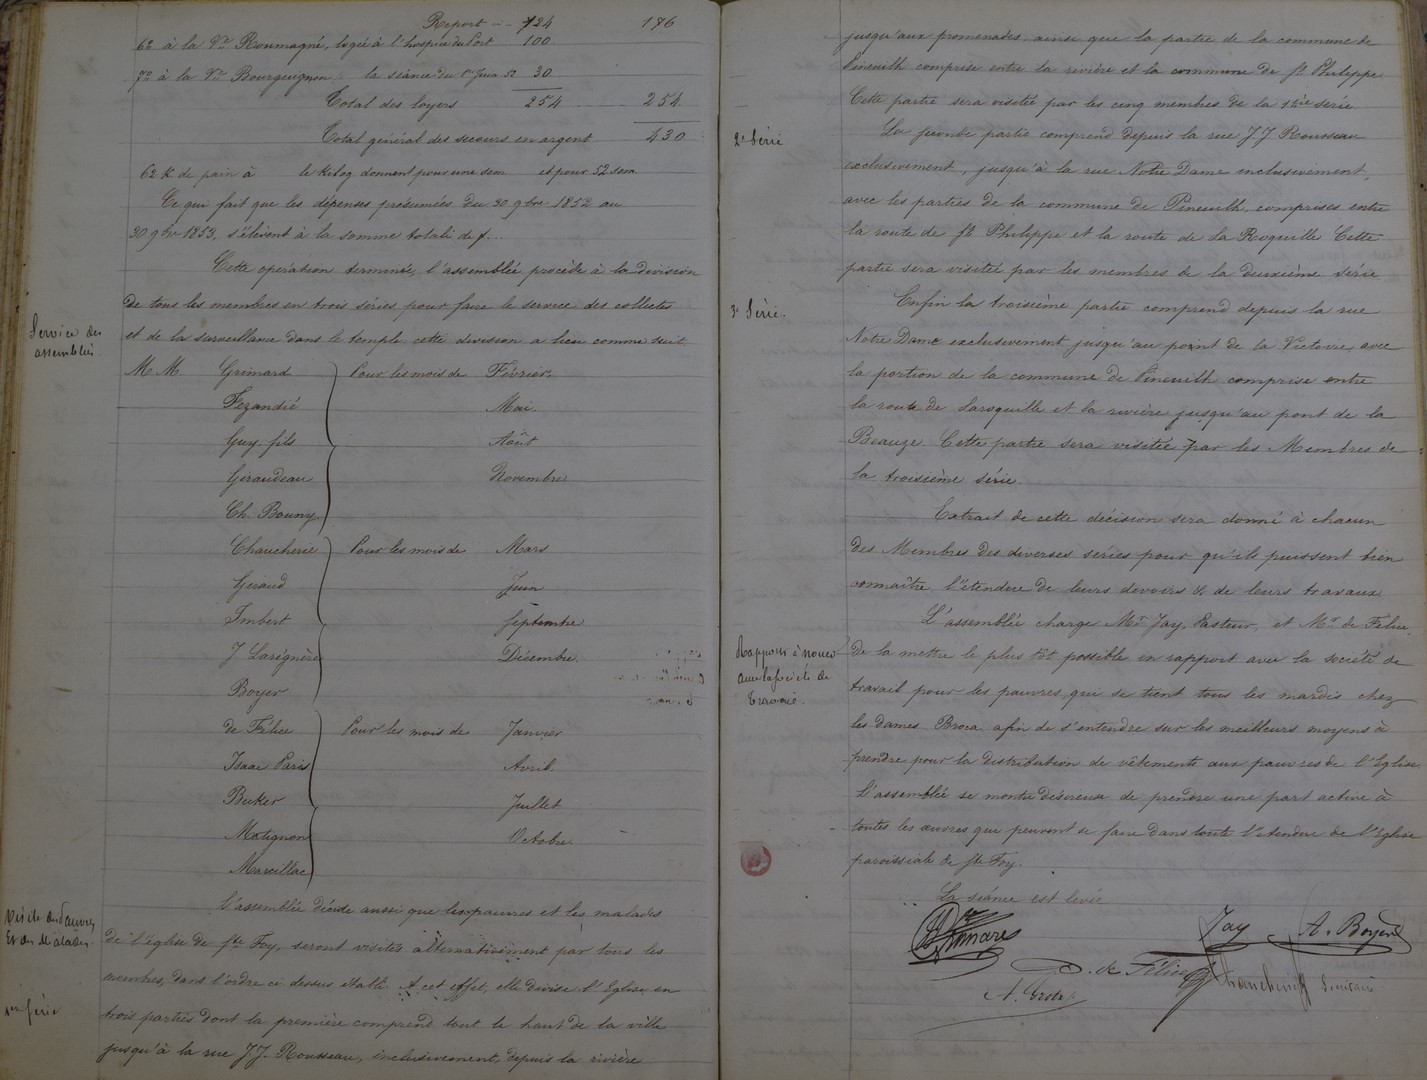 Report - - 124 176
6° à la Vve Roumagné, logée à l'hospice du Port 100
7° à la Vve Bourguignon, la séance du 1er Juin 52 30
Total des loyers 254 254
Total général des secours en argent 430
62 K de pain à le kilog donnent pour une sem et pour 52 sem
Ce qui fait que les dépenses présumées du 30 9bre 1852 au
30 9br 1853, s'élèvent à la somme totale de f...
Cette opération terminée, l'assemblée procède à la division
de tous les membres en trois séries pour faire le service des collectes
Service des
assemblées
et de la surveillance dans le temple cette division a lieu comme suit
M M Grimard Pour les mois de Février.
Fezandié Mai.
Guy fils Août
Giraudeau Novembre
Ch. Bouny
Chaucherie Pour les mois de Mars
Geraud Juin
Imbert Septembre
J Larégnère Décembre.
Boyer
de Félice Pour les mois de Janvier
Isaac Paris Avril.
Buker Juillet
Matignon Octobre
Marcillac
L'assemblée décide aussi que les pauvres et les malades
Visite des Pauvres
Et des Malades
de l'église de Ste Foy, seront visités alternativement par tous les
membres, dans l'ordre ci dessus établi. A cet effet, elle divise l'Eglise en
1ere Série
trois parties dont la première comprend tout le haut de la ville
jusqu'à la rue J.J. Rousseau, inclusivement, depuis la rivière
jusqu'aux promenades, ainsi que la partie de la commune de
Pineuilh comprise entre la rivière et la commune de St Philippe
Cette partie sera visitée par les cinq membres de la 1ère série
2e Série
La seconde partie comprend depuis la rue J J Rousseau
exclusivement, jusqu'à la rue Notre Dame inclusivement,
avec les parties de la commune de Pineuilh, comprises entre
la route de St Philippe et la route de La Roquille Cette
partie sera visitée par les membres de la deuxième série
3e Série.
Enfin la troisième partie comprend depuis la rue
Notre Dame exclusivement jusqu'au point de la Victoire, avec
la portion de la commune de Pineuilh comprise entre
la route de Laroquille et la rivière jusqu'au pont de la
Beauze. Cette partie sera visitée par les Membres de
la troisième série.
Extrait de cette décision sera donné à chacun
des Membres des diverses séries pour qu'ils puissent bien
connaître l'étendue de leurs devoirs & de leurs travaux
L'assemblée charge Mr Jay, Pasteur, et Mr de Félice
Rapports à nouer
avec la société de
travail.
de la mettre le plus tôt possible en rapport avec la société de
travail pour les pauvres, qui se tient tous les mardis chez
les dames Broca afin de s'entendre sur les meilleurs moyens à
prendre pour la distribution de vêtements aux pauvres de l'Eglise
L'assemblée se montre désireuse de prendre une part active à
toutes les œuvres qui peuvent se faire dans toute l'étendue de l'Eglise
paroissiale de Ste Foy.
La séance est levée
Jay A. Boyer
D. de Félice
Chaucherie Secrétaire